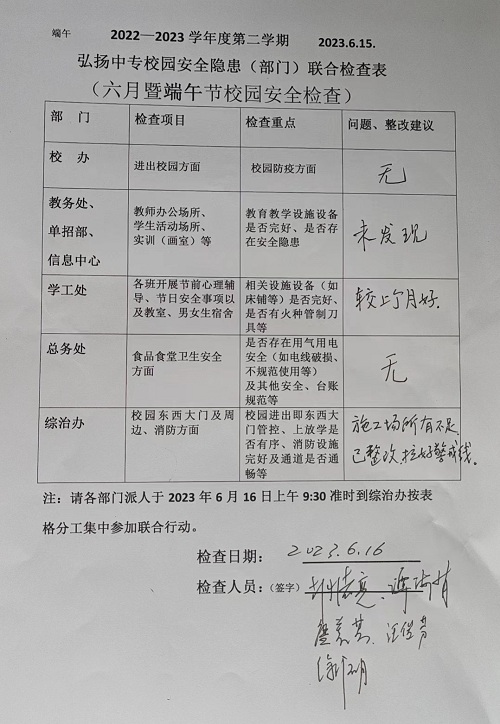 端午
2022—2023 学年度第二学期 2023.6.15.
弘扬中专校园安全隐患（部门）联合检查表
（六月暨端午节校园安全检查）
部 门 检查项目 检查重点 问题、整改建议
校 办 进出校园方面 校园防疫方面 无
教务处、
单招部、
信息中心
教师办公场所、
学生活动场所、
实训（画室）等
教育教学设施设备
是否完好、是否存
在安全隐患
未发现
学工处
各班开展节前心理辅
导、节日安全事项以
及教室、男女生宿舍
相关设施设备（如
床铺等）是否完好、
是否有火种管制刀
具等
较上个月好.
总务处
食品食堂卫生安全
方面
是否存在用气用电
安全（如电线破损、
不规范使用等）
及其他安全、台账
规范等
无
综治办
校园东西大门及周
边、消防方面
校园进出即东西大
门管控、上放学是
否有序、消防设施
完好及通道是否通
畅等
施工场所有不足
已整改,拉好警戒线.
注：请各部门派人于 2023 年 6 月 16 日上午 9:30 准时到综治办按表
格分工集中参加联合行动。
检查日期： 2023.6.16
检查人员：（签字）